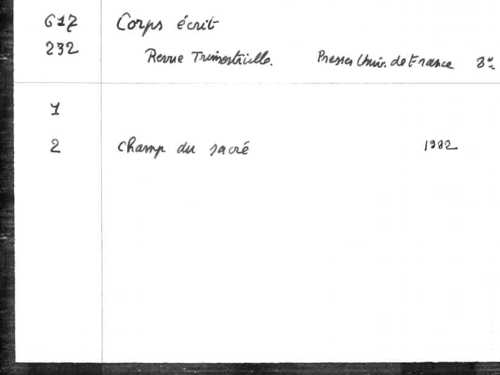 617 Corps écrit
232 Revue Trimestrielle. Presses Univ. de France
1
2 Champ du sacré 1982